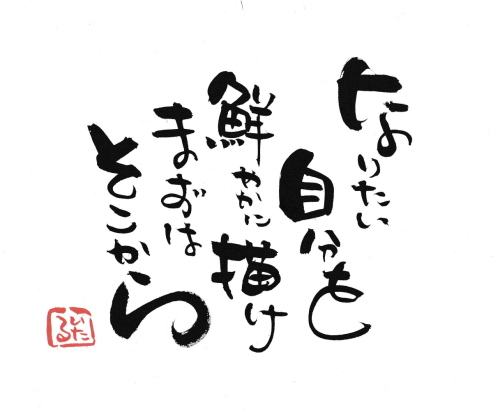 なりたい
自分を
鮮やかに描け
まずは
そこから